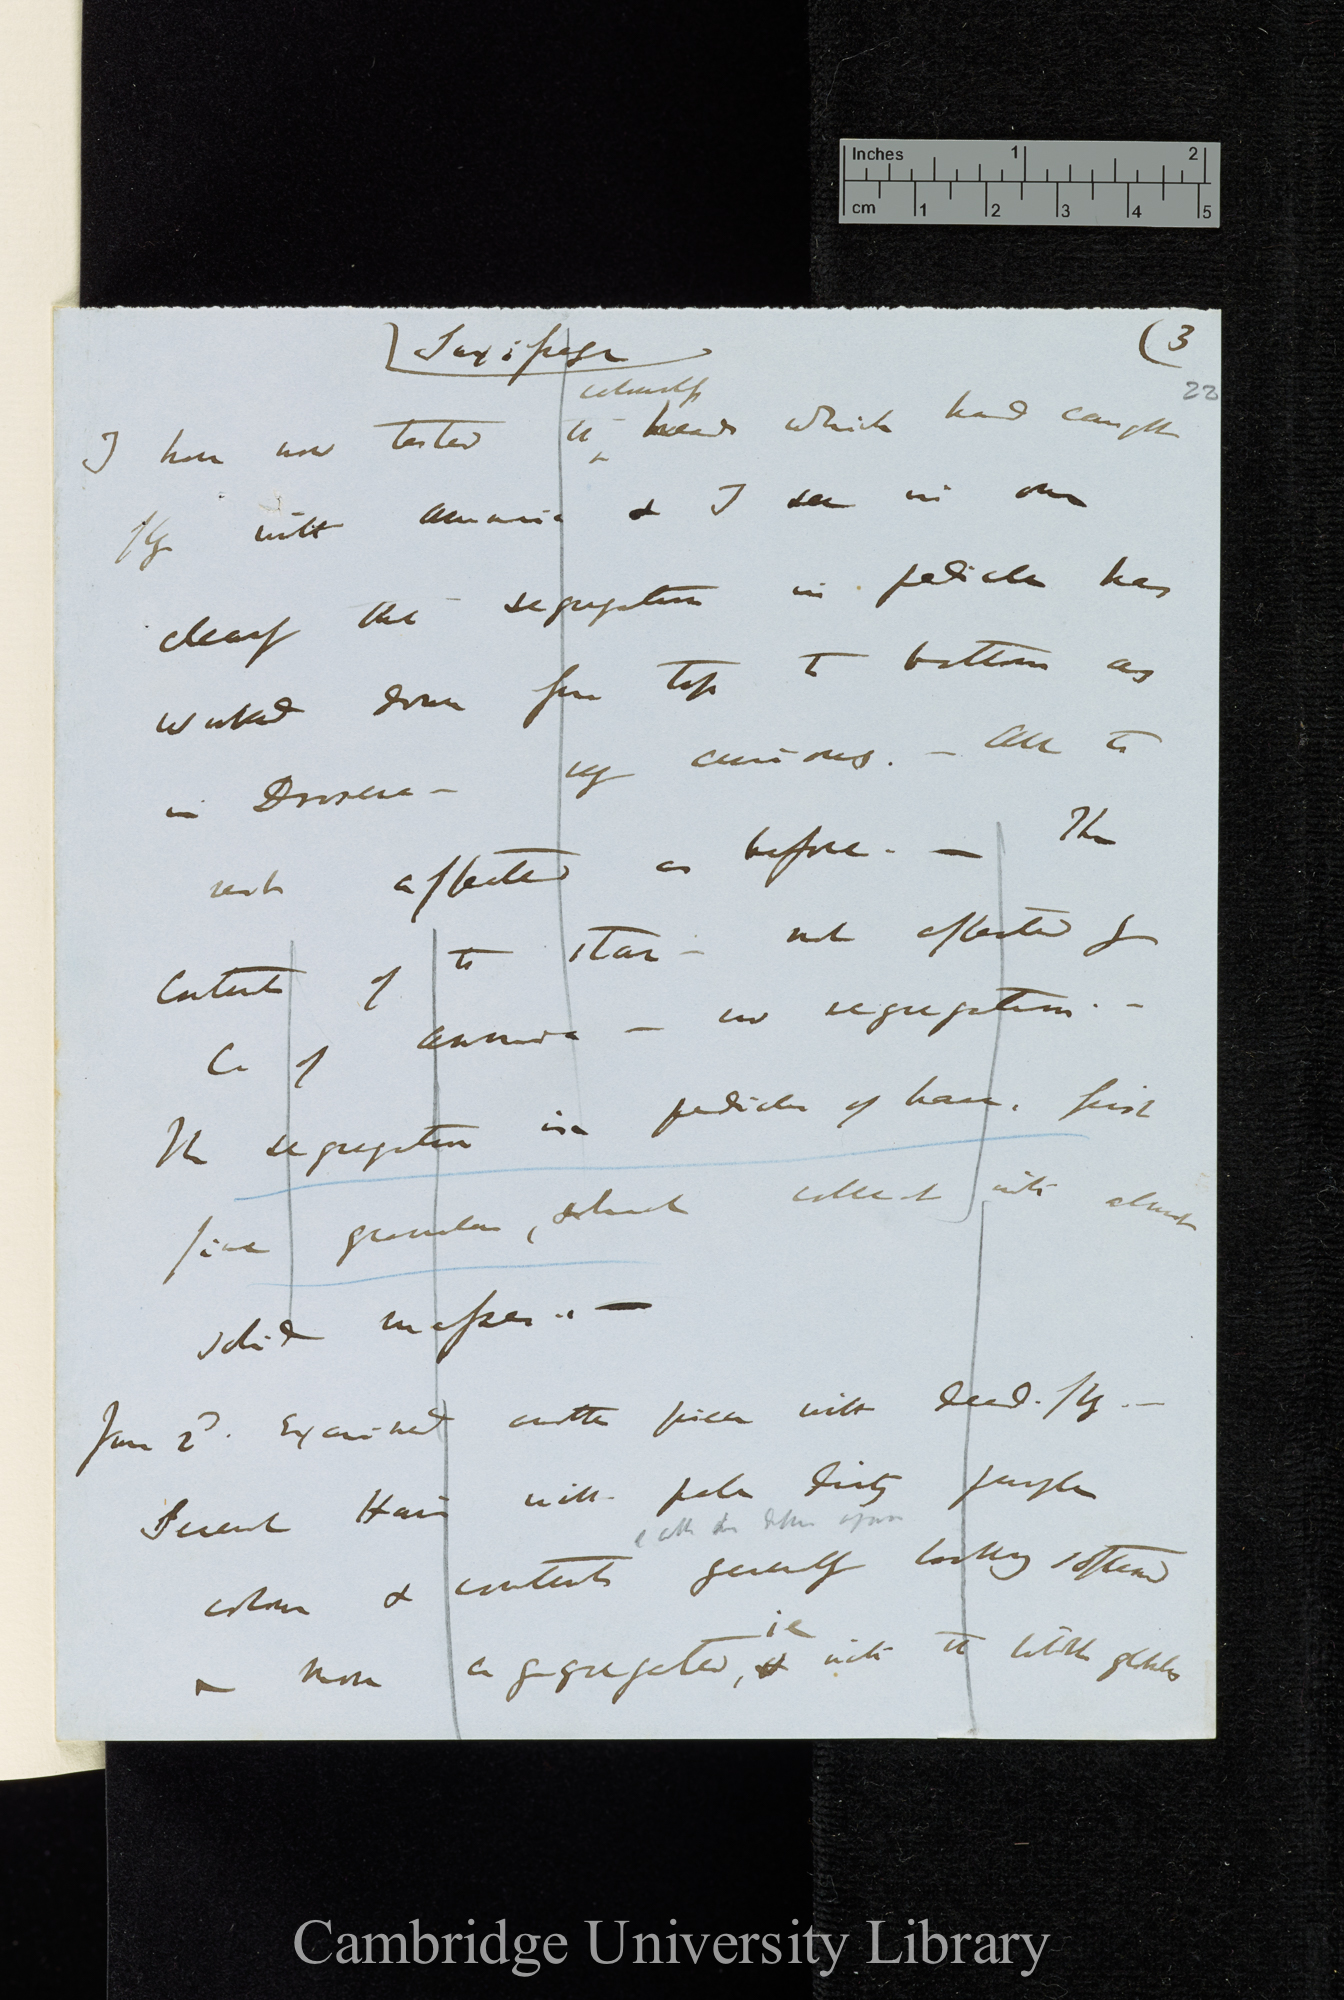 Inches 1 2
cm 1 2 3 4 5
Saxifraga
(3
22
I have now tested the heads which had caught
fly with ammonia & I see in one
clearly that segregation in pedicels has
worked down from top to bottom as
in Drosera — very curious. — All the
rest affected as before. — The
contents of the stem — not affected by
C. of ammonia — no segregation. —
The segregation in pedicels of hairs, first
fine granules, which collect into almost
solid masses. —
June 2d. Examined another piece with dead fly. —
Several Hairs with pale dirty purple
colour & contents generally looking
more aggregated, ie into the little globules
Cambridge University Library